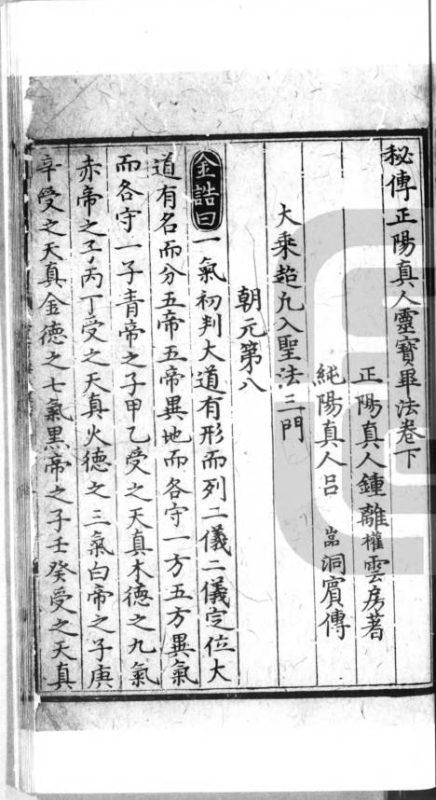 秘傳正陽真人靈寶畢法卷下
正陽真人鍾離權雲房著
純陽真人吕嵓洞賓傳
大乘超凡入聖法三門
朝元第八
金誥曰一氣初判大道有形而列二儀二儀定位大
道有名而分五帝五帝異地而各守一方五方異氣
而各守一子青帝之子甲乙受之天真木德之九氣
赤帝之子丙丁受之天真火德之三氣白帝之子庚
辛受之天真金德之七氣黑帝之子壬癸受之天真